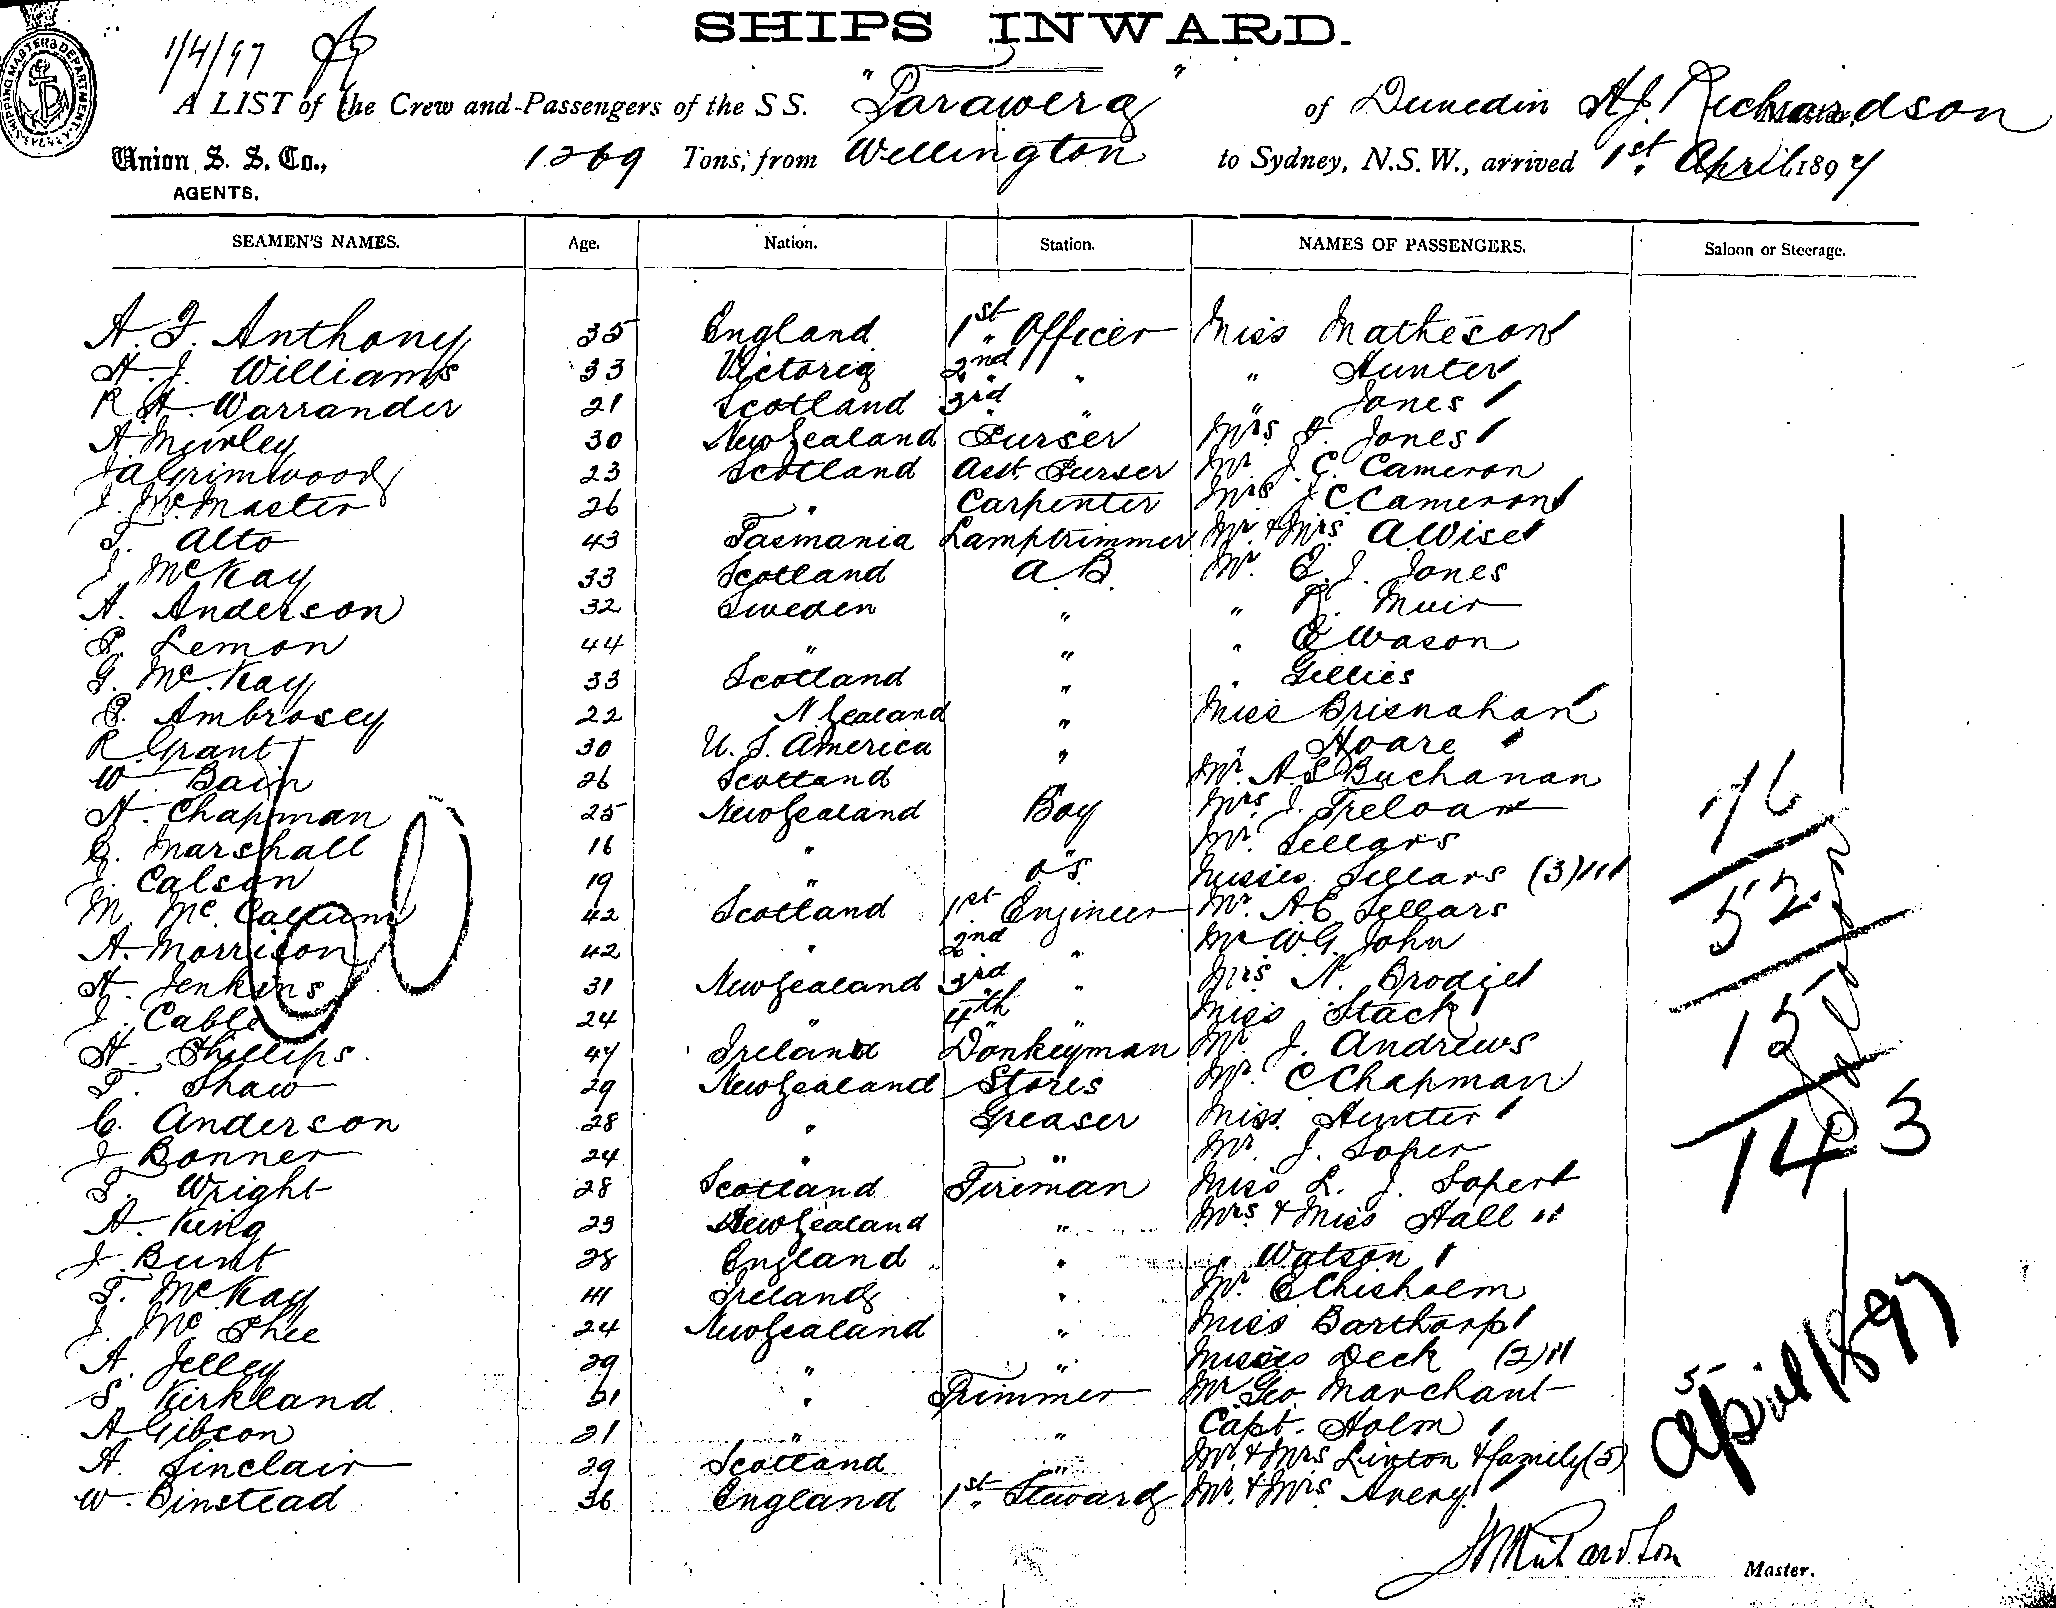 SHIPS INWARD.
1/4/97
A LIST of the Crew and Passengers of the S.S. "Tarawera" of Dunedin H.J. Richardson
Union S. S. Co., 1269 Tons, from Wellington to Sydney, N.S.W., arrived 1st April 1897
AGENTS.
SEAMEN'S NAMES. Age. Nation. Station. NAMES OF PASSENGERS. Saloon or Steerage.
A. F. Anthony 35 England 1st Officer Miss Matheson
H. J. Williams 33 Victoria 2nd " " Hunter
R. H. Warrander 21 Scotland 3rd " " Jones
A. Mewley 30 New Zealand Purser Mrs F. Jones
J A Grimwood 23 Scotland Asst. Purser Mr J. C. Cameron
J. McMaster 26 " Carpenter Mrs J C Cameron
T. Alto 43 Tasmania Lamptrimmer Mr. & Mrs A Wise
J. McKay 33 Scotland A.B. Mr. E. J. Jones
A. Anderson 32 Sweden " " R. Muir
P. Lemon 44 " " " E Wason
G. McKay 33 Scotland " " Gillies
P. Ambrosey 22 N Zealand " Miss Brisnahan
R. Grant 30 U. S. America " " Hoare
W Bain 26 Scotland Mr. A S Buchanan
H. Chapman 25 New Zealand Boy Mrs J. Treloar
G. Marshall 16 " " Mr. Sellars
J. Calson 19 " O.S. Misses Sellars (3)
M McCallum 42 Scotland 1st Engineer Mr. A E Sellars
A. Morrison 42 " 2nd " Mr W G. John
H. Jenkins 31 New Zealand 3rd " Mrs N. Brodie
J. Cable 24 " 4th " Miss Stack
H. Phillips. 47 Ireland Donkeyman Mr. J. Andrews
T. Shaw 29 New Zealand Stores Mr. C Chapman
C. Anderson 28 " Greaser Miss. Hunter
J Bonner 24 " " Mr. J. Soper
T. Wright 28 Scotland Fireman Miss L. J. Soper
A. King 23 New Zealand " Mrs & Miss Hall
J Burt 28 England " " Watson
T. McKay 41 Ireland " Mr. E Chisholm
J. McPhee 24 New Zealand " Miss Barthorp
A. Jelley 29 " " Misses Deck (2)
S. Kirkland 21 " Trimmer Mr Geo. Marchant
A Gibson 21 " " Capt. Holm
A. Sinclair 29 Scotland " Mr. & Mrs Linton & family (5)
W. Binstead 36 England 1st Steward Mr. & Mrs. Avery
76
52
15
143
5
April 1897
Master.